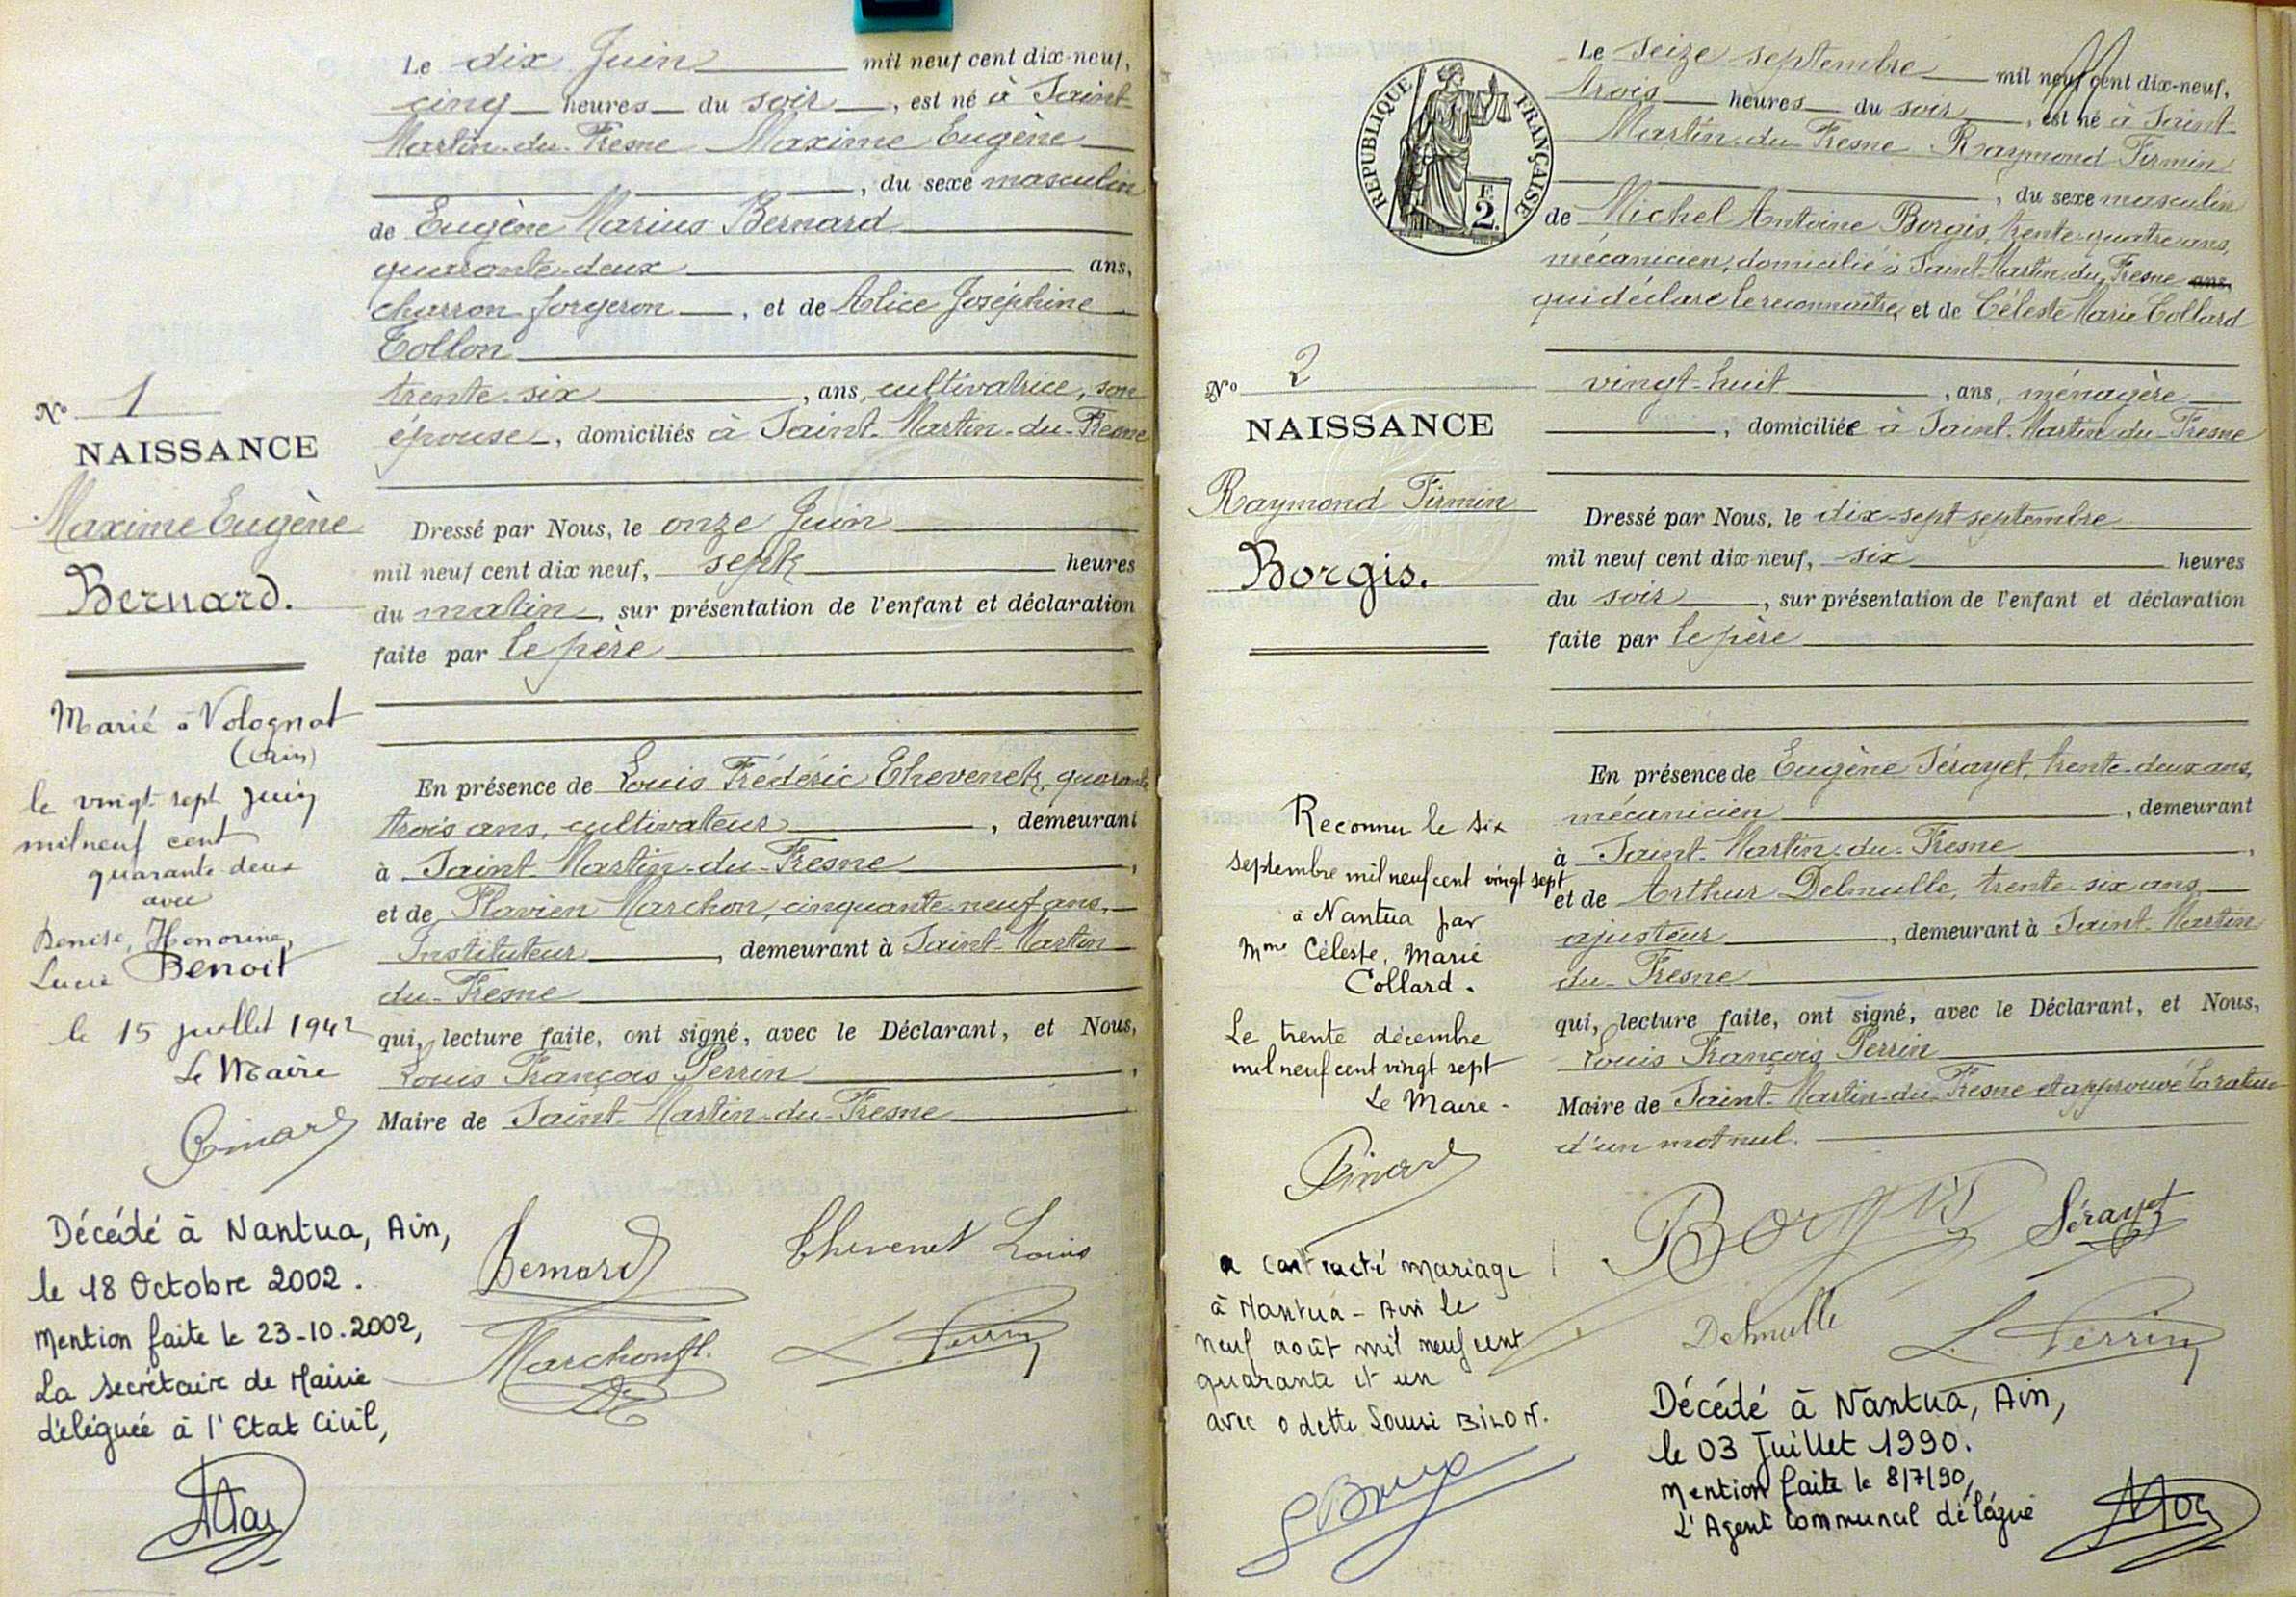 Le dix Juin mil neuf cent dix-neuf,
cinq heures du soir, est né à Saint
Martin-du-Fresne Maxime Eugène
, du sexe masculin
de Eugène Marius Bernard
quarante-deux ans,
charron forgeron, et de Alice Joséphine
Collon
trente-six, ans, cultivatrice, son
épouse, domiciliés à Saint-Martin-du-Fresne
Nº 1
NAISSANCE
Maxime Eugène
Bernard.
Dressé par Nous, le onze Juin
mil neuf cent dix neuf, sept heures
du matin, sur présentation de l'enfant et déclaration
faite par le père
Marié à Volognat
(Ain)
le vingt sept juin
mil neuf cent
quarante deux
avec
Denise, Honorine,
Lucie Benoit
le 15 juillet 1942
Le Maire
Pinard
En présence de Louis Frédéric Chevenet, quarante
trois ans, cultivateur, demeurant
à Saint-Martin-du-Fresne,
et de Flavien Marchon, cinquante-neuf ans,
Instituteur, demeurant à Saint-Martin
du-Fresne
qui, lecture faite, ont signé, avec le Déclarant, et Nous,
Louis François Perrin,
Maire de Saint-Martin-du-Fresne
Décédé à Nantua, Ain,
le 18 Octobre 2002.
Mention faite le 23-10-2002,
La secrétaire de Mairie
déléguée à l'Etat Civil,
Bernard
Chevenet Louis
Marchon fl.
L. Perrin
Le seize septembre mil neuf cent dix-neuf,
trois heures du soir, est né à Saint-
Martin-du-Fresne Raymond Firmin
, du sexe masculin
de Michel Antoine Borgis, trente-quatre ans,
mécanicien, domicilié à Saint-Martin-du-Fresne ans,
qui déclare le reconnaître, et de Céleste Marie Collard
vingt-huit, ans, ménagère
, domiciliée à Saint-Martin-du-Fresne
REPUBLIQUE FRANÇAISE
F.
2.
Nº 2
NAISSANCE
Raymond Firmin
Borgis.
Dressé par Nous, le dix-sept septembre
mil neuf cent dix-neuf, six heures
du soir, sur présentation de l'enfant et déclaration
faite par le père
En présence de Eugène Sérayet, trente-deux ans,
mécanicien, demeurant
à Saint-Martin-du-Fresne,
et de Arthur Delmulle, trente-six ans,
ajusteur, demeurant à Saint-Martin
du-Fresne
qui, lecture faite, ont signé, avec le Déclarant, et Nous,
Louis François Perrin
Maire de Saint-Martin-du-Fresne et approuvé la rature
d'un mot nul.
Reconnu le six
septembre mil neuf cent vingt sept
à Nantua par
Mme Céleste, Marie
Collard.
Le trente décembre
mil neuf cent vingt sept
Le Maire.
Pinard
a contracté mariage
à Nantua - Ain le
neuf août mil neuf cent
quarante et un
avec Odette Louise BILON.
Borgis
Sérayet
Delmulle
L. Perrin
Décédé à Nantua, Ain,
le 03 Juillet 1990.
Mention faite le 8/7/90,
L'Agent communal délégué